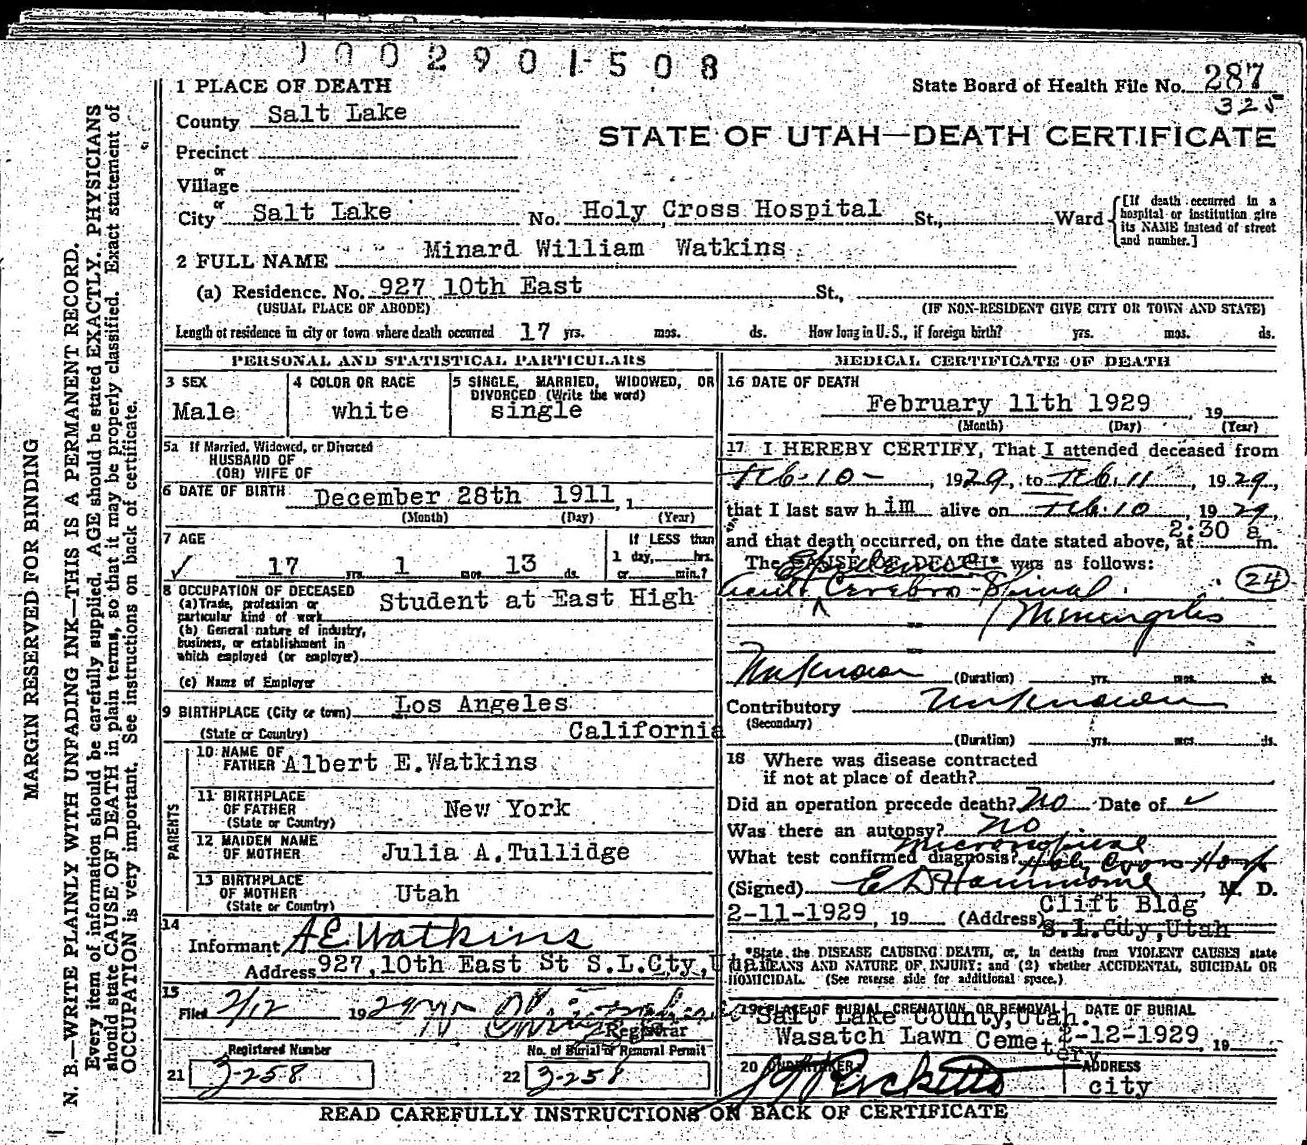 1002901508
1 PLACE OF DEATH
State Board of Health File No. 287
325
County Salt Lake
STATE OF UTAH—DEATH CERTIFICATE
Precinct
or
Village
or
City Salt Lake No. Holy Cross Hospital St., Ward [If death occurred in a hospital or institution give its NAME instead of street and number.]
2 FULL NAME Minard William Watkins
(a) Residence. No. 927 10th East St.,
(USUAL PLACE OF ABODE) (IF NON-RESIDENT GIVE CITY OR TOWN AND STATE)
Length of residence in city or town where death occurred 17 yrs. mos. ds. How long in U.S., if foreign birth? yrs. mos. ds.
PERSONAL AND STATISTICAL PARTICULARS
3 SEX
Male
4 COLOR OR RACE
white
5 SINGLE, MARRIED, WIDOWED, OR
DIVORCED (Write the word)
single
5a If Married, Widowed, or Divorced
HUSBAND OF
(OR) WIFE OF
6 DATE OF BIRTH December 28th 1911, 1
(Month) (Day) (Year)
7 AGE
17 yrs. 1 mos. 13 ds.
If LESS than
1 day, hrs.
or min.?
8 OCCUPATION OF DECEASED
(a) Trade, profession or
particular kind of work Student at East High
(b) General nature of industry,
business, or establishment in
which employed (or employer)
(c) Name of Employer
9 BIRTHPLACE (City or town) Los Angeles
(State or Country) California
PARENTS
10 NAME OF
FATHER Albert E.Watkins
11 BIRTHPLACE
OF FATHER New York
(State or Country)
12 MAIDEN NAME
OF MOTHER Julia A.Tullidge
13 BIRTHPLACE
OF MOTHER Utah
(State or Country)
14
Informant A E Watkins
Address 927,10th East St S.L.Cty,Utah
15
Filed 2/12 1929
Registrar
Registered Number
21 3-258
No. of Burial or Removal Permit
22 3-258
MEDICAL CERTIFICATE OF DEATH
16 DATE OF DEATH
February 11th 1929, 19
(Month) (Day) (Year)
17 I HEREBY CERTIFY, That I attended deceased from
Feb. 10-, 1929, to Feb. 11, 1929,
that I last saw him alive on Feb. 10, 1929,
and that death occurred, on the date stated above, at 2:30 a m.
The CAUSE OF DEATH* was as follows:
Epidemic
Acute Cerebro-Spinal (24)
Meningitis
Unknown (Duration) yrs. mos. ds.
Contributory Unknown
(Secondary)
(Duration) yrs. mos. ds.
18 Where was disease contracted
if not at place of death?
Did an operation precede death? No Date of
Was there an autopsy? No
What test confirmed diagnosis? Holy Cross Hosp
(Signed) E D Hammond, M. D.
2-11-1929, 19 (Address) Clift Bldg
S.L.Cty,Utah
*State the DISEASE CAUSING DEATH, or, in deaths from VIOLENT CAUSES state
MEANS AND NATURE OF INJURY; and (2) whether ACCIDENTAL, SUICIDAL OR
HOMICIDAL. (See reverse side for additional space.)
19 PLACE OF BURIAL, CREMATION, OR REMOVAL
Salt Lake County,Utah.
Wasatch Lawn Cemetery
DATE OF BURIAL
2-12-1929, 19
20 UNDERTAKER
Ricketts
ADDRESS
city
READ CAREFULLY INSTRUCTIONS ON BACK OF CERTIFICATE
MARGIN RESERVED FOR BINDING
N. B.—WRITE PLAINLY WITH UNFADING INK—THIS IS A PERMANENT RECORD.
Every item of information should be carefully supplied. AGE should be stated EXACTLY. PHYSICIANS
should state CAUSE OF DEATH in plain terms, so that it may be properly classified. Exact statement of
OCCUPATION is very important. See instructions on back of certificate.